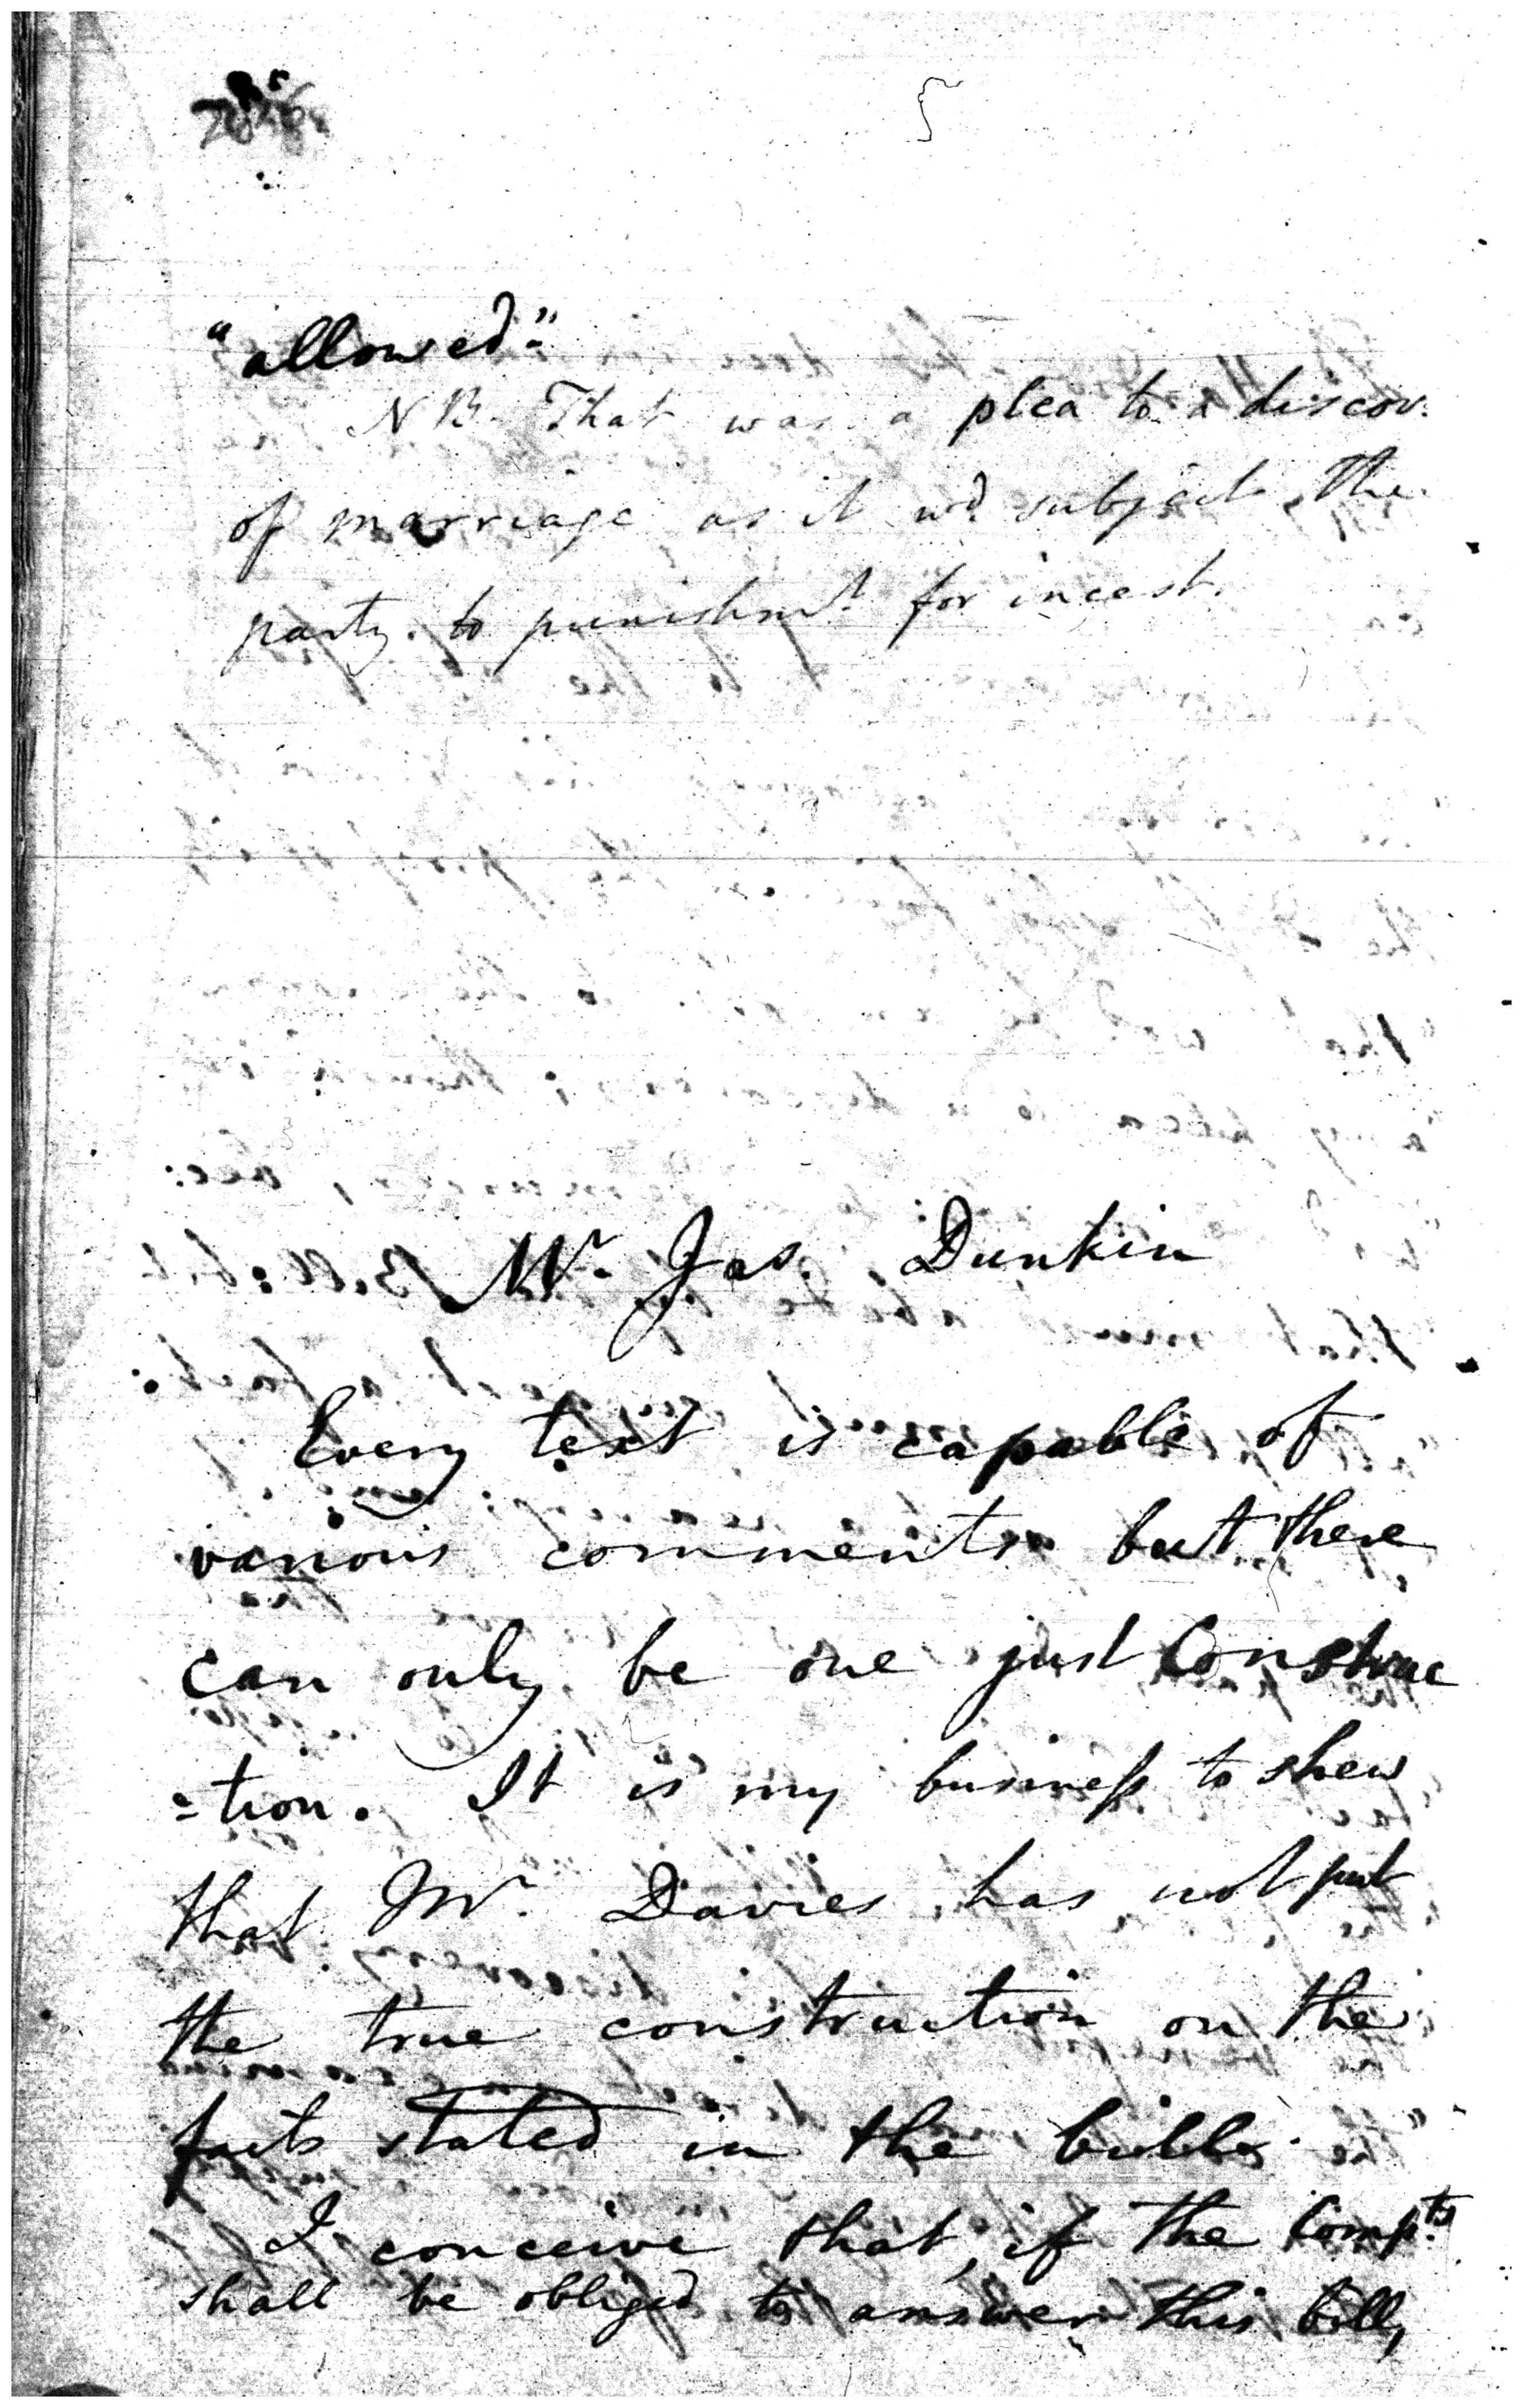 5
"allowed."
NB. That was a plea to a discov.
of marriage as it wd. subject the
party to punishmt. for incest.
Mr. Jas. Dunkin
Every text is capable of
various comments but there
can only be one just Construc
=tion. It is my business to shew
that Mr. Davies has not put
the true construction on the
facts stated in the bills.
I conceive that, if the Compts.
shall be obliged to answer this bill,